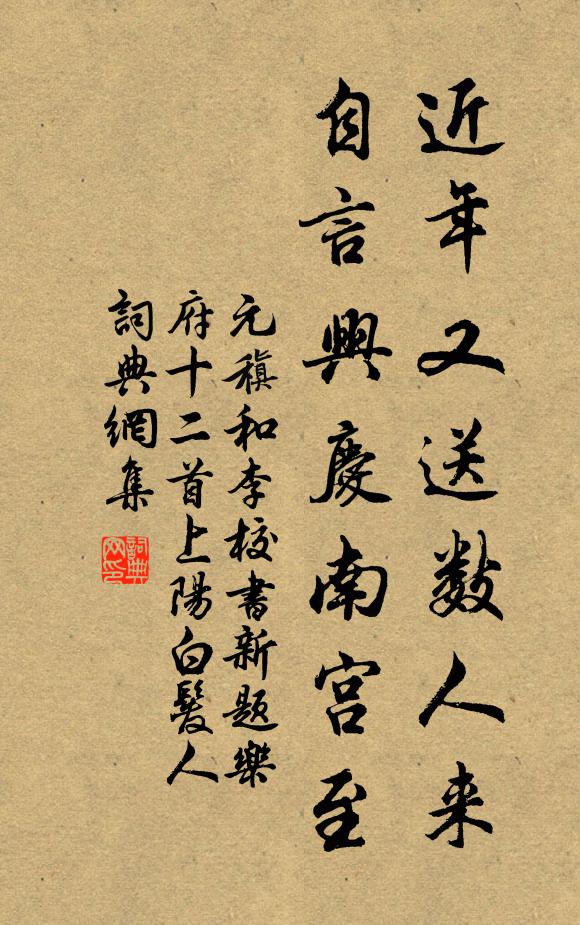 近年又送數人来
自言興慶南宮至
元稹和李校書新題樂
府十二首上陽白髮人
詞典網集
詞典
网印